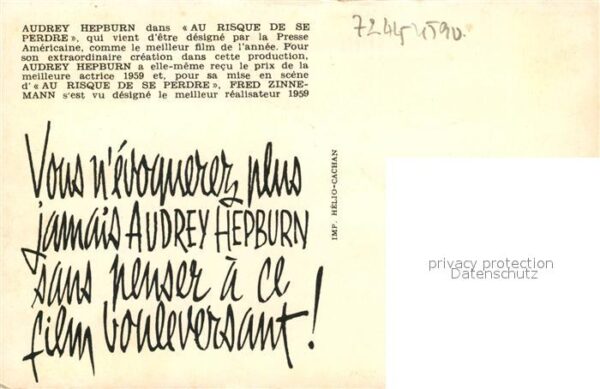 AUDREY HEPBURN dans « AU RISQUE DE SE
PERDRE », qui vient d'être désigné par la Presse
Américaine, comme le meilleur film de l'année. Pour
son extraordinaire création dans cette production,
AUDREY HEPBURN a elle-même reçu le prix de la
meilleure actrice 1959 et, pour sa mise en scène
d'« AU RISQUE DE SE PERDRE », FRED ZINNE-
MANN s'est vu désigné le meilleur réalisateur 1959
Vous n'évoquerez plus
jamais AUDREY HEPBURN
sans penser à ce
film bouleversant !
IMP. HÉLIO-CACHAN
privacy protection
Datenschutz